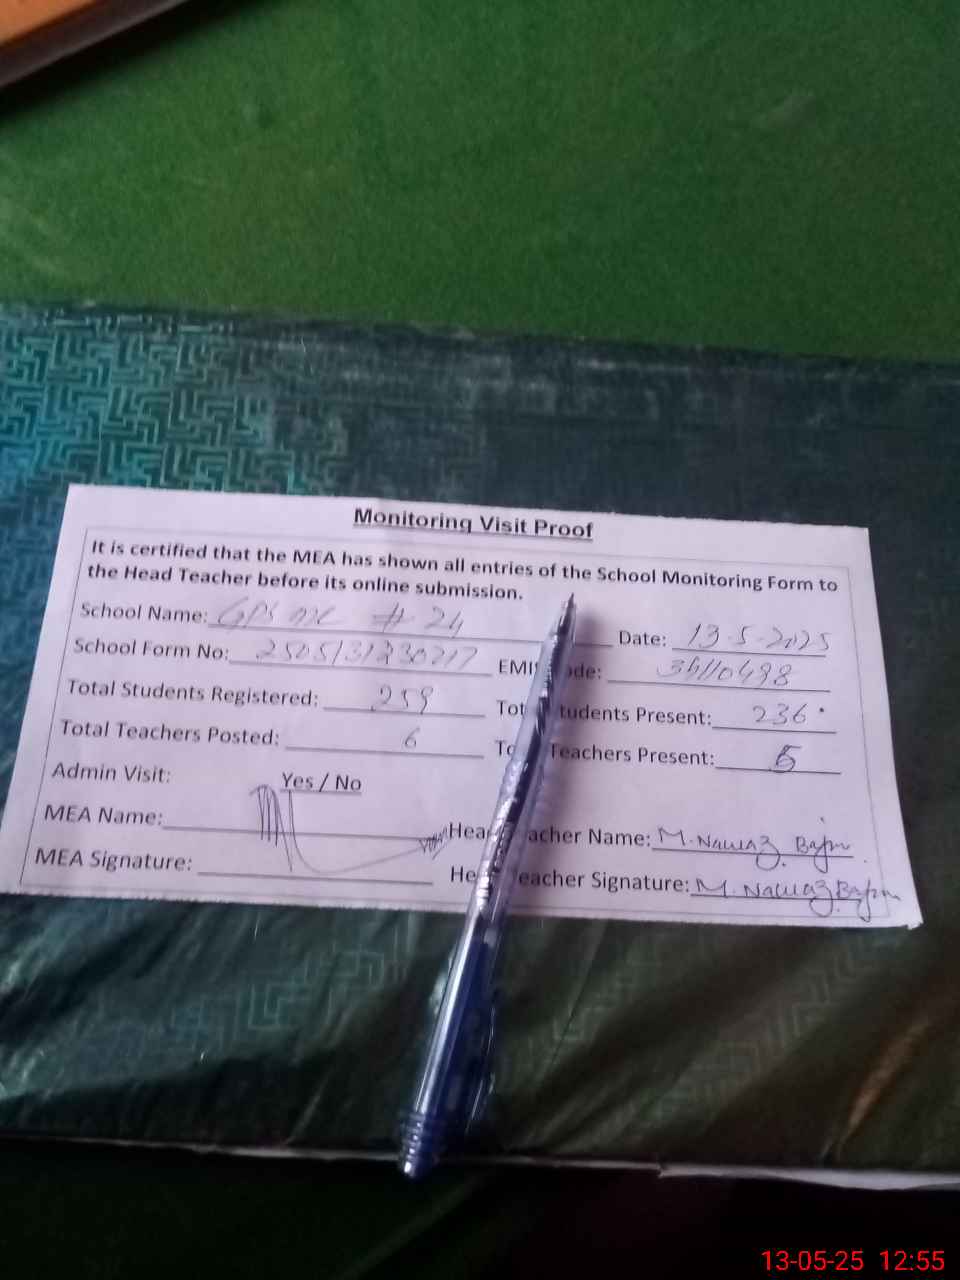 Monitoring Visit Proof
It is certified that the MEA has shown all entries of the School Monitoring Form to
the Head Teacher before its online submission.
School Name: GPS MC # 24 Date: 13-5-2025
School Form No: 2505131230217 EMIS Code: 34110498
Total Students Registered: 259 Total Students Present: 236
Total Teachers Posted: 6 Total Teachers Present: 5
Admin Visit: Yes / No
MEA Name: Head Teacher Name: M. Nawaz
MEA Signature: Head Teacher Signature: M. Nawaz
13-05-25 12:55